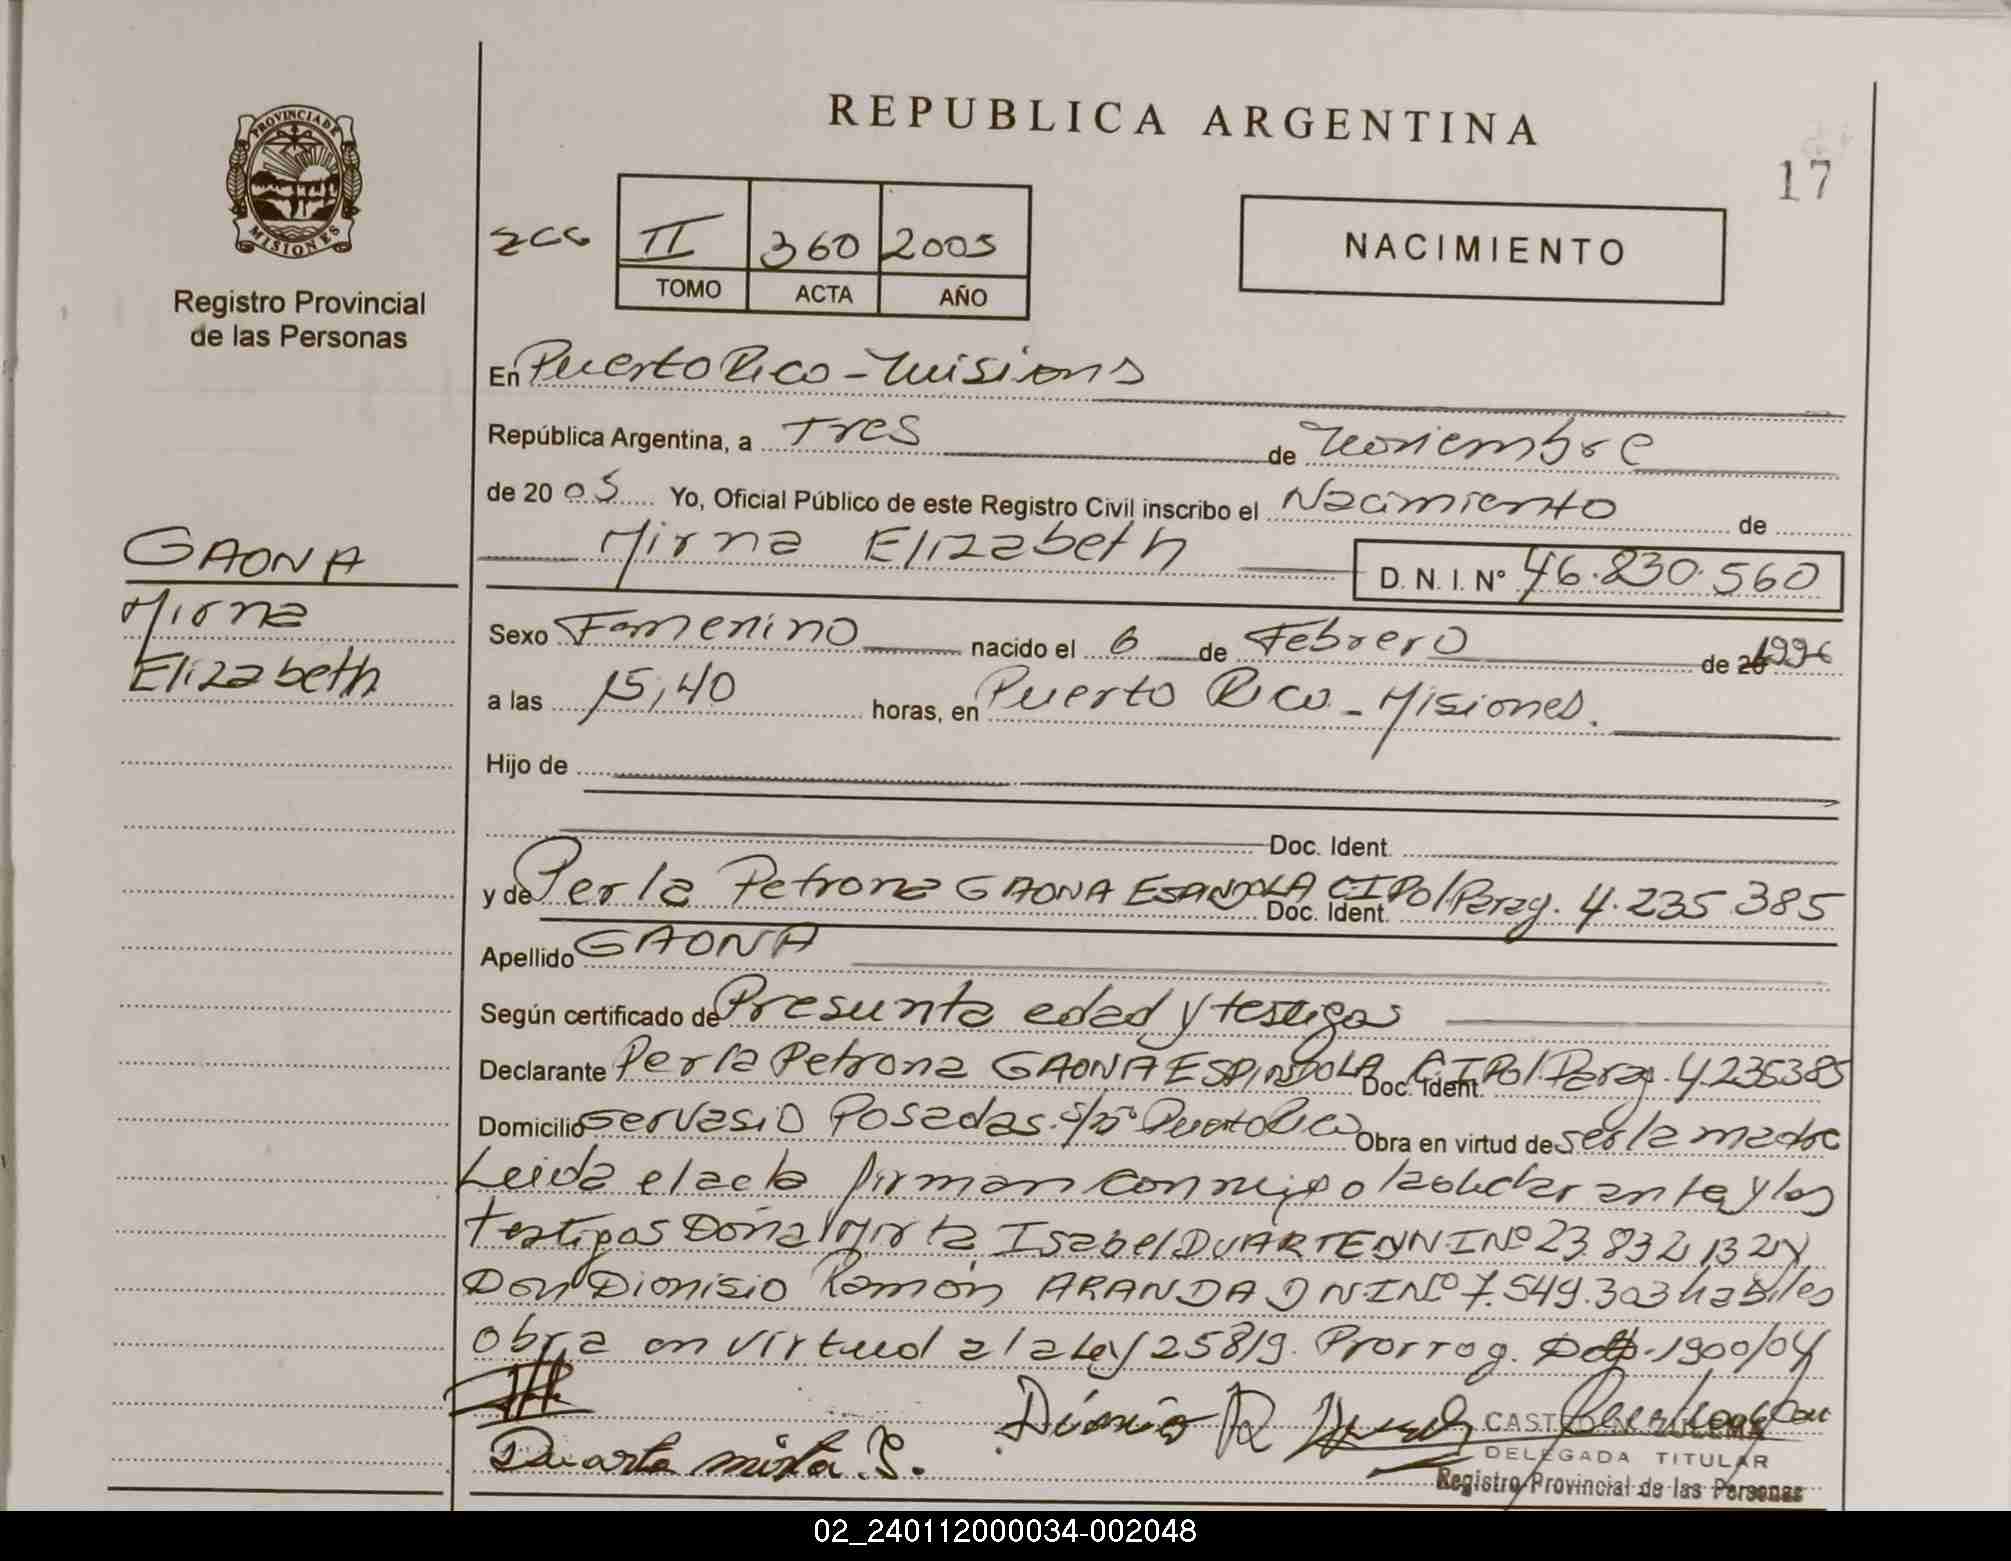 REPUBLICA ARGENTINA
17
PROVINCIA DE MISIONES
Registro Provincial
de las Personas
II 360 2005
TOMO ACTA AÑO
NACIMIENTO
En Puerto Rico - Misiones
República Argentina, a Tres de Noviembre
de 20 05 Yo, Oficial Público de este Registro Civil inscribo el Nacimiento de
Mirna Elizabeth D. N. I. N° 46.830.560
GAONA
Mirna
Elizabeth
Sexo Femenino nacido el 6 de Febrero de 20 1996
a las 15,40 horas, en Puerto Rico - Misiones.
Hijo de
Doc. Ident.
y de Perla Petrona GAONA ESPINDOLA Doc. Ident. CIPol/Parag. 4.235.385
Apellido GAONA
Según certificado de Presunta edad y testigos
Declarante Perla Petrona GAONA ESPINDOLA Doc. Ident. CIPol/Parag. 4.235385
Domicilio Gervasio Posadas s/nº Puerto Rico Obra en virtud de ser la madre
Leida el acta firman conmigo la declarante y los
testigos Doña Mirta Isabel DUARTE DNINº 23.832.132 y
Don Dionisio Ramón ARANDA DNINº 7.549.303 habiles
obra en virtud a la Ley 25819. Prorrog. 1900/04
Duarte mirta. I.
DELEGADA TITULAR
Registro Provincial de las Personas
02_240112000034-002048